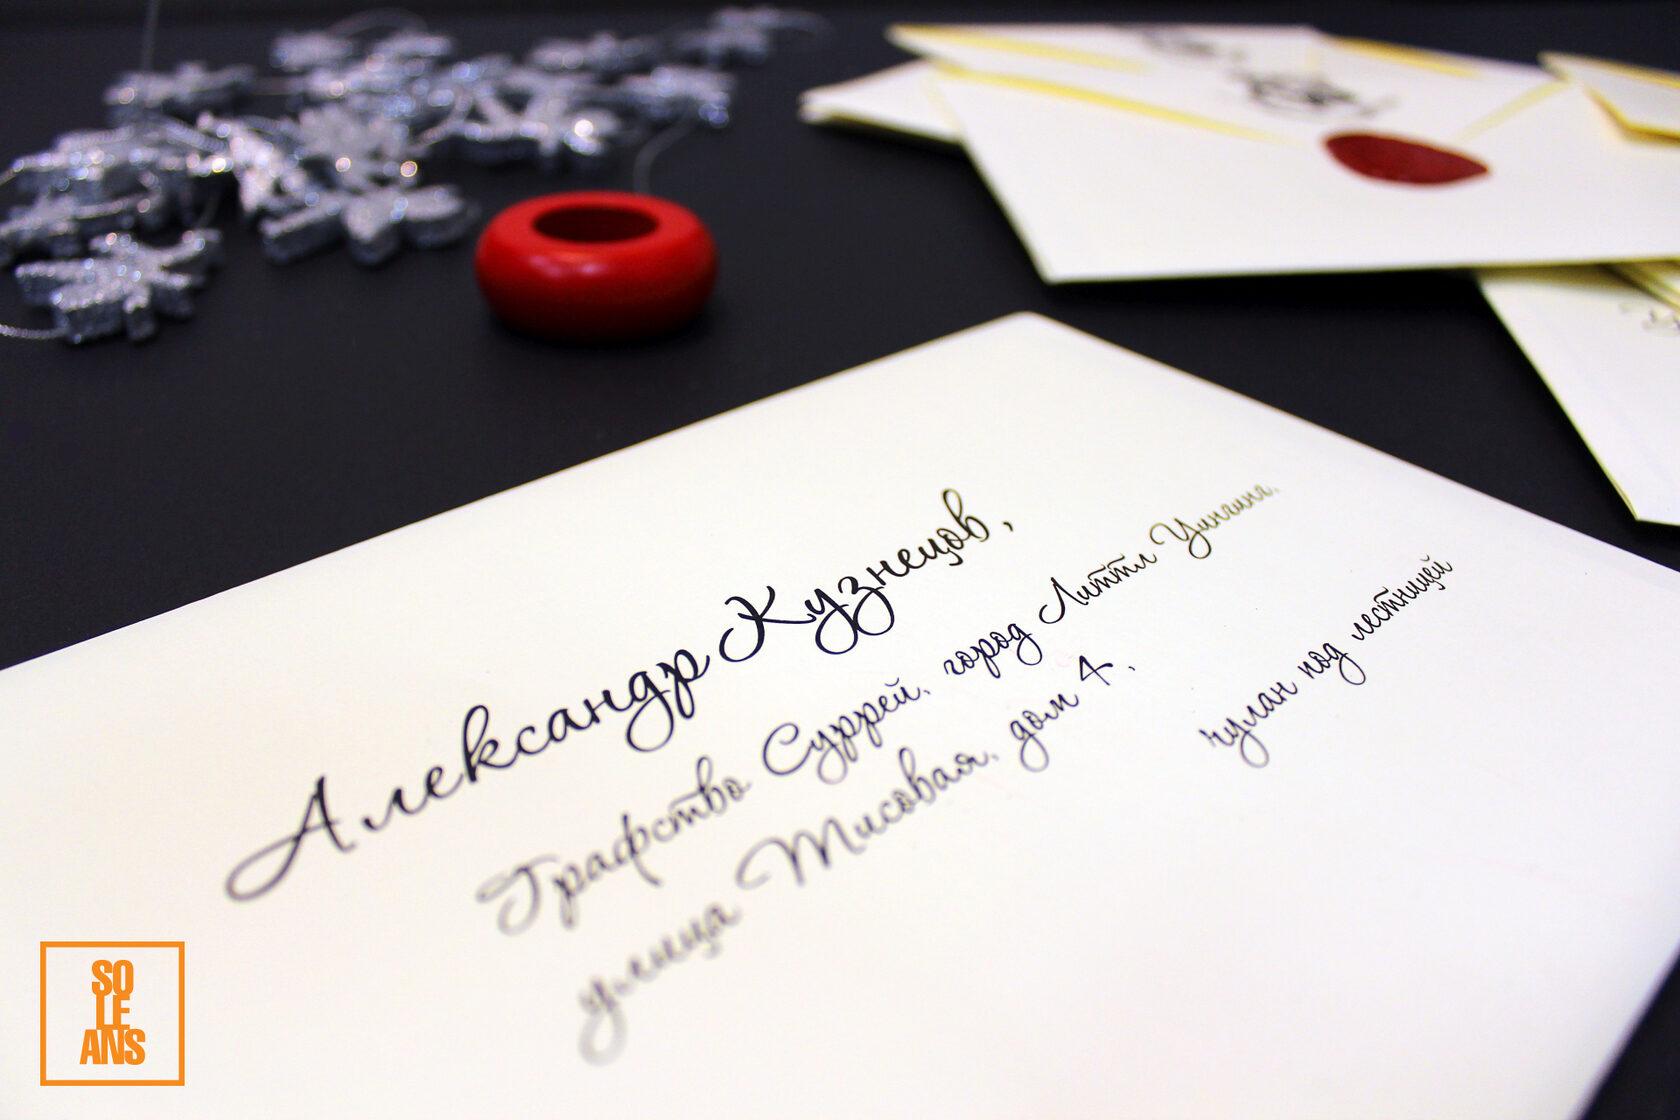 Александр Кузнецов,
Графство Суррей, город Литтл Уингинг,
улица Тисовая, дом 4,
чулан под лестницей
SO
LE
ANS